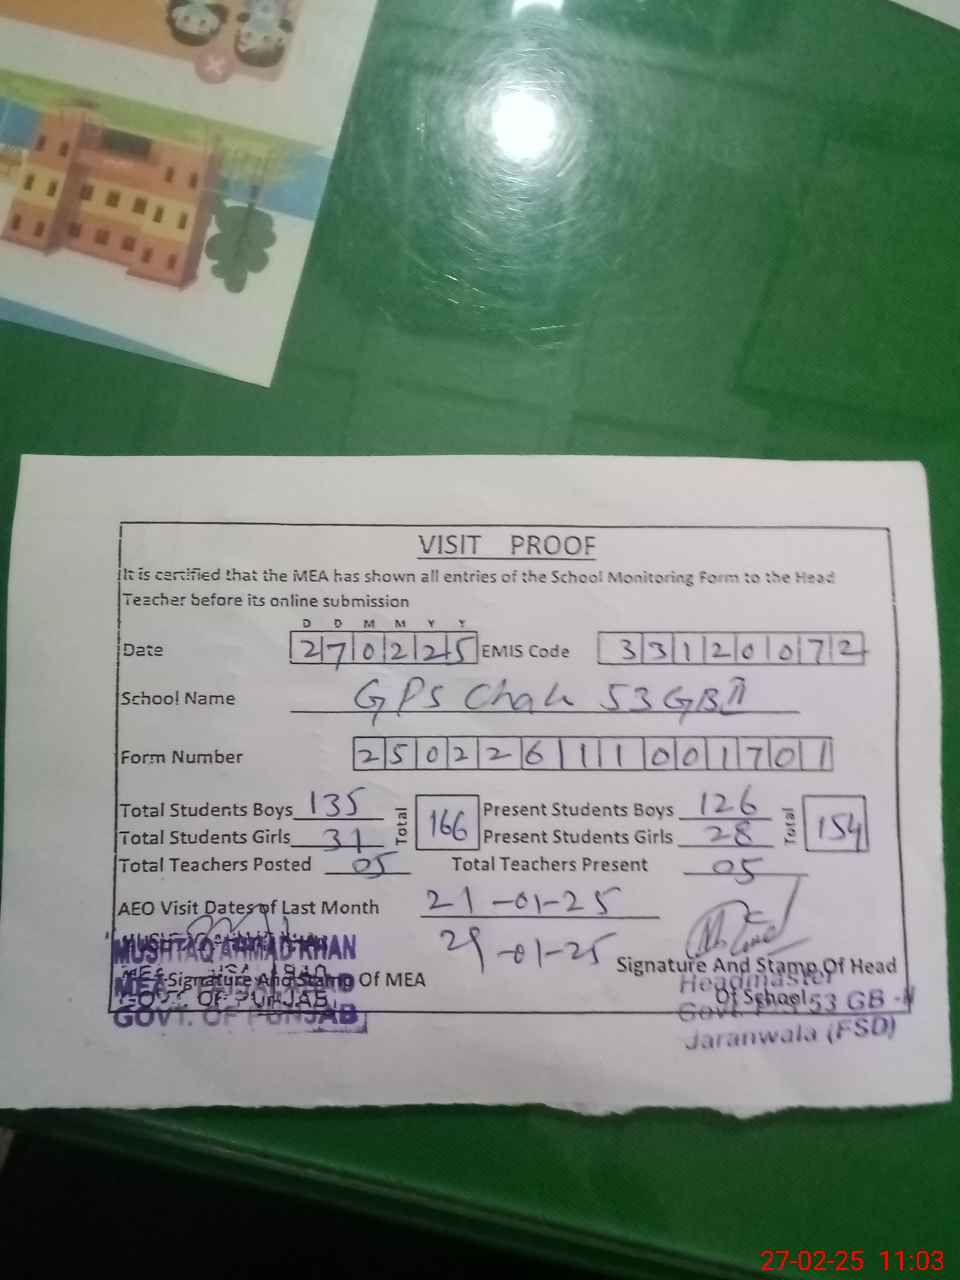 VISIT PROOF
It is certified that the MEA has shown all entries of the School Monitoring Form to the Head
Teacher before its online submission
D D M M Y Y
Date 270225 EMIS Code 33120072
School Name GPS Chak 53 GB II
Form Number 250226111001701
Total Students Boys 135 Total 166 Present Students Boys 126 Total 154
Total Students Girls 31 Present Students Girls 28
Total Teachers Posted 05 Total Teachers Present 05
AEO Visit Dates of Last Month 21-01-25
29-01-25
MUSHTAQ AHMAD KHAN
MEA
Signature And Stamp Of MEA
GOVT. OF PUNJAB
Signature And Stamp Of Head
Of School
Headmaster
Govt. 53 GB -II
Jaranwala (FSD)
27-02-25 11:03